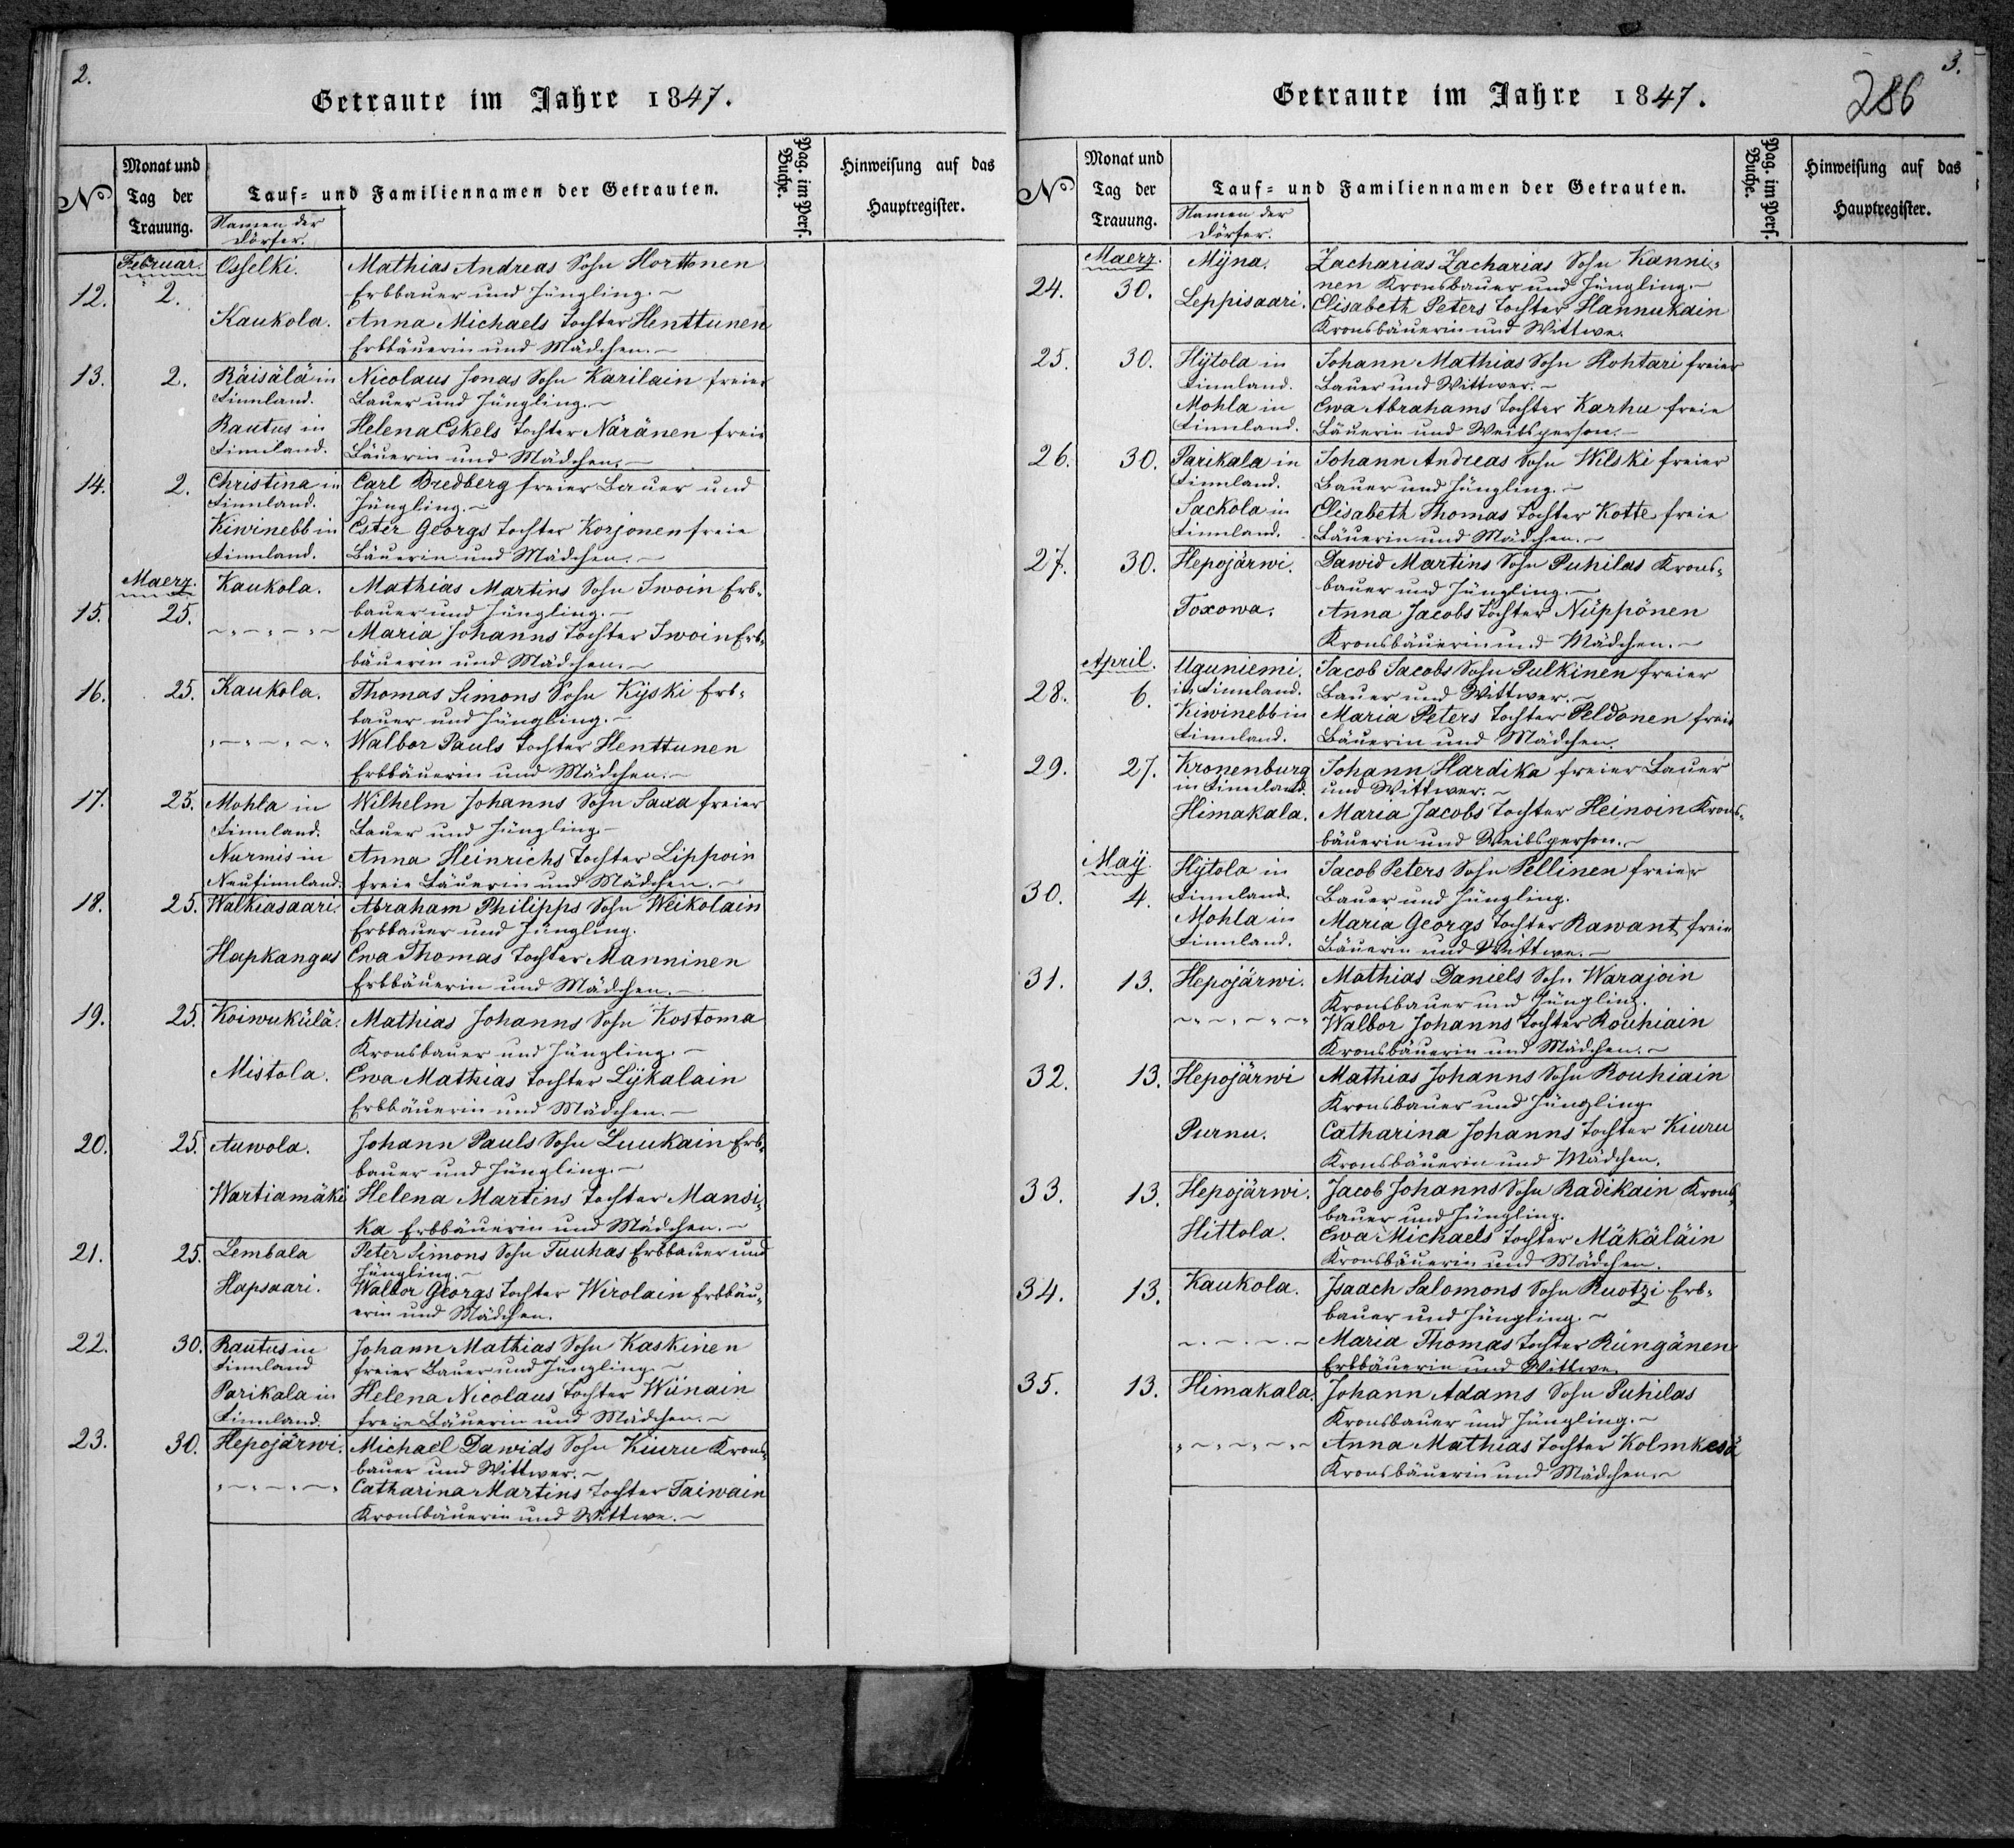 2.
Getraute im Jahre 1847.
No
Monat und Tag der Trauung.
Tauf- und Familiennamen der Getrauten.
Namen der Dörfer.
Pag. im Pers. Buche.
Hinweisung auf das Hauptregister.
Februar. Osselki. Mathias Andreas Sohn Horttonen
12. 2. Erbbauer und Jüngling.
Kaukola. Anna Michaels Tochter Henttunen
Erbbäuerin und Mädchen.
13. 2. Räisälä in Nicolaus Jonas Sohn Karilain freier
Finnland. Bauer und Jüngling.
Rautus in Helena Eskels Tochter Näränen freie
Finnland. Bäuerin und Mädchen.
14. 2. Christina in Carl Bredberg freier Bauer und
Finnland. Jüngling.
Kiwinebb in Ester Georgs Tochter Korjonen freie
Finnland. Bäuerin und Mädchen.
Maerz. Kaukola. Mathias Martins Sohn Iwoin Erb-
15. 25. bauer und Jüngling.
Maria Johanns Tochter Iwoin Erb-
bäuerin und Mädchen.
16. 25. Kaukola. Thomas Simons Sohn Kijski Erb-
bauer und Jüngling.
Walbor Pauls Tochter Henttunen
Erbbäuerin und Mädchen.
17. 25. Mohla in Wilhelm Johanns Sohn Saxa freier
Finnland. Bauer und Jüngling.
Nurmis in Anna Heinrichs Tochter Lippoin
Neufinnland. freie Bäuerin und Mädchen.
18. 25. Walkiasaari. Abraham Philipps Sohn Weikolain
Erbbauer und Jüngling.
Hapkangas Ewa Thomas Tochter Manninen
Erbbäuerin und Mädchen.
19. 25. Koiwukülä. Mathias Johanns Sohn Kostoma
Kronsbauer und Jüngling.
Mistola. Ewa Mathias Tochter Lijkalain
Erbbäuerin und Mädchen.
20. 25. Auwola. Johann Pauls Sohn Luukain Erb-
bauer und Jüngling.
Wartiamäki Helena Martins Tochter Mansi-
ka Erbbäuerin und Mädchen.
21. 25. Lembala Peter Simons Sohn Tuuhas Erbbauer und
Jüngling.
Hapsaari. Walbor Georgs Tochter Wirolain Erbbäu-
erin und Mädchen.
22. 30. Rautus in Johann Mathias Sohn Kaskinen
Finnland freier Bauer und Jüngling.
Parikala in Helena Nicolaus Tochter Wünain
Finnland. freie Bäuerin und Mädchen.
23. 30. Hepojärwi. Michael Dawids Sohn Kiuru Krons-
bauer und Wittwer.
Catharina Martins Tochter Taiwain
Kronsbäuerin und Wittwe.
3.
286
Getraute im Jahre 1847.
No
Monat und Tag der Trauung.
Tauf- und Familiennamen der Getrauten.
Namen der Dörfer.
Pag. im Pers. Buche.
Hinweisung auf das Hauptregister.
Maerz. Mijna. Zacharias Zacharias Sohn Kanni-
24. 30. nen Kronsbauer und Jüngling.
Leppisaari. Elisabeth Peters Tochter Hannukain
Kronsbäuerin und Wittwe.
25. 30. Hijtola in Johann Mathias Sohn Hohtari freier
Finnland. Bauer und Wittwer.
Mohla in Ewa Abrahams Tochter Karhu freie
Finnland. Bäuerin und Weibsperson.
26. 30. Parikala in Johann Andreas Sohn Wilski freier
Finnland. Bauer und Jüngling.
Sackola in Elisabeth Thomas Tochter Kotte freie
Finnland. Bäuerin und Mädchen.
27. 30. Hepojärwi. Dawid Martins Sohn Puhilas Krons-
bauer und Jüngling.
Toxowa. Anna Jacobs Tochter Nüppönen
Kronsbäuerin und Mädchen.
April. Uguniemi. Jacob Jacobs Sohn Pulkinen freier
28. 6. in Finnland. Bauer und Wittwer.
Kiwinebb in Maria Peters Tochter Peldonen freie
Finnland. Bäuerin und Mädchen.
29. 27. Kronenburg Johann Hardika freier Bauer
in Finnland. und Wittwer.
Himakala. Maria Jacobs Tochter Heinoin Krons-
bäuerin und Weibsperson.
Maÿ. Hijtola in Jacob Peters Sohn Pellinen freier
30. 4. Finnland. Bauer und Jüngling.
Mohla in Maria Georgs Tochter Rawant freie
Finnland. Bäuerin und Wittwe.
31. 13. Hepojärwi. Mathias Daniels Sohn Warajoin
Kronsbauer und Jüngling.
Walbor Johanns Tochter Rouhiain
Kronsbäuerin und Mädchen.
32. 13. Hepojärwi Mathias Johanns Sohn Rouhiain
Kronsbauer und Jüngling
Purnu. Catharina Johanns Tochter Kiuru
Kronsbäuerin und Mädchen.
33. 13. Hepojärwi. Jacob Johanns Sohn Radikain Krons-
bauer und Jüngling.
Hittola. Ewa Michaels Tochter Mäkäläin
Kronsbäuerin und Mädchen.
34. 13. Kaukola. Isaach Salomons Sohn Ruotzi Erb-
bauer und Jüngling.
Maria Thomas Tochter Rüngänen
Erbbäuerin und Wittwe.
35. 13. Himakala. Johann Adams Sohn Puhilas
Kronsbauer und Jüngling.
Anna Mathias Tochter Kolmkesä
Kronsbäuerin und Mädchen.